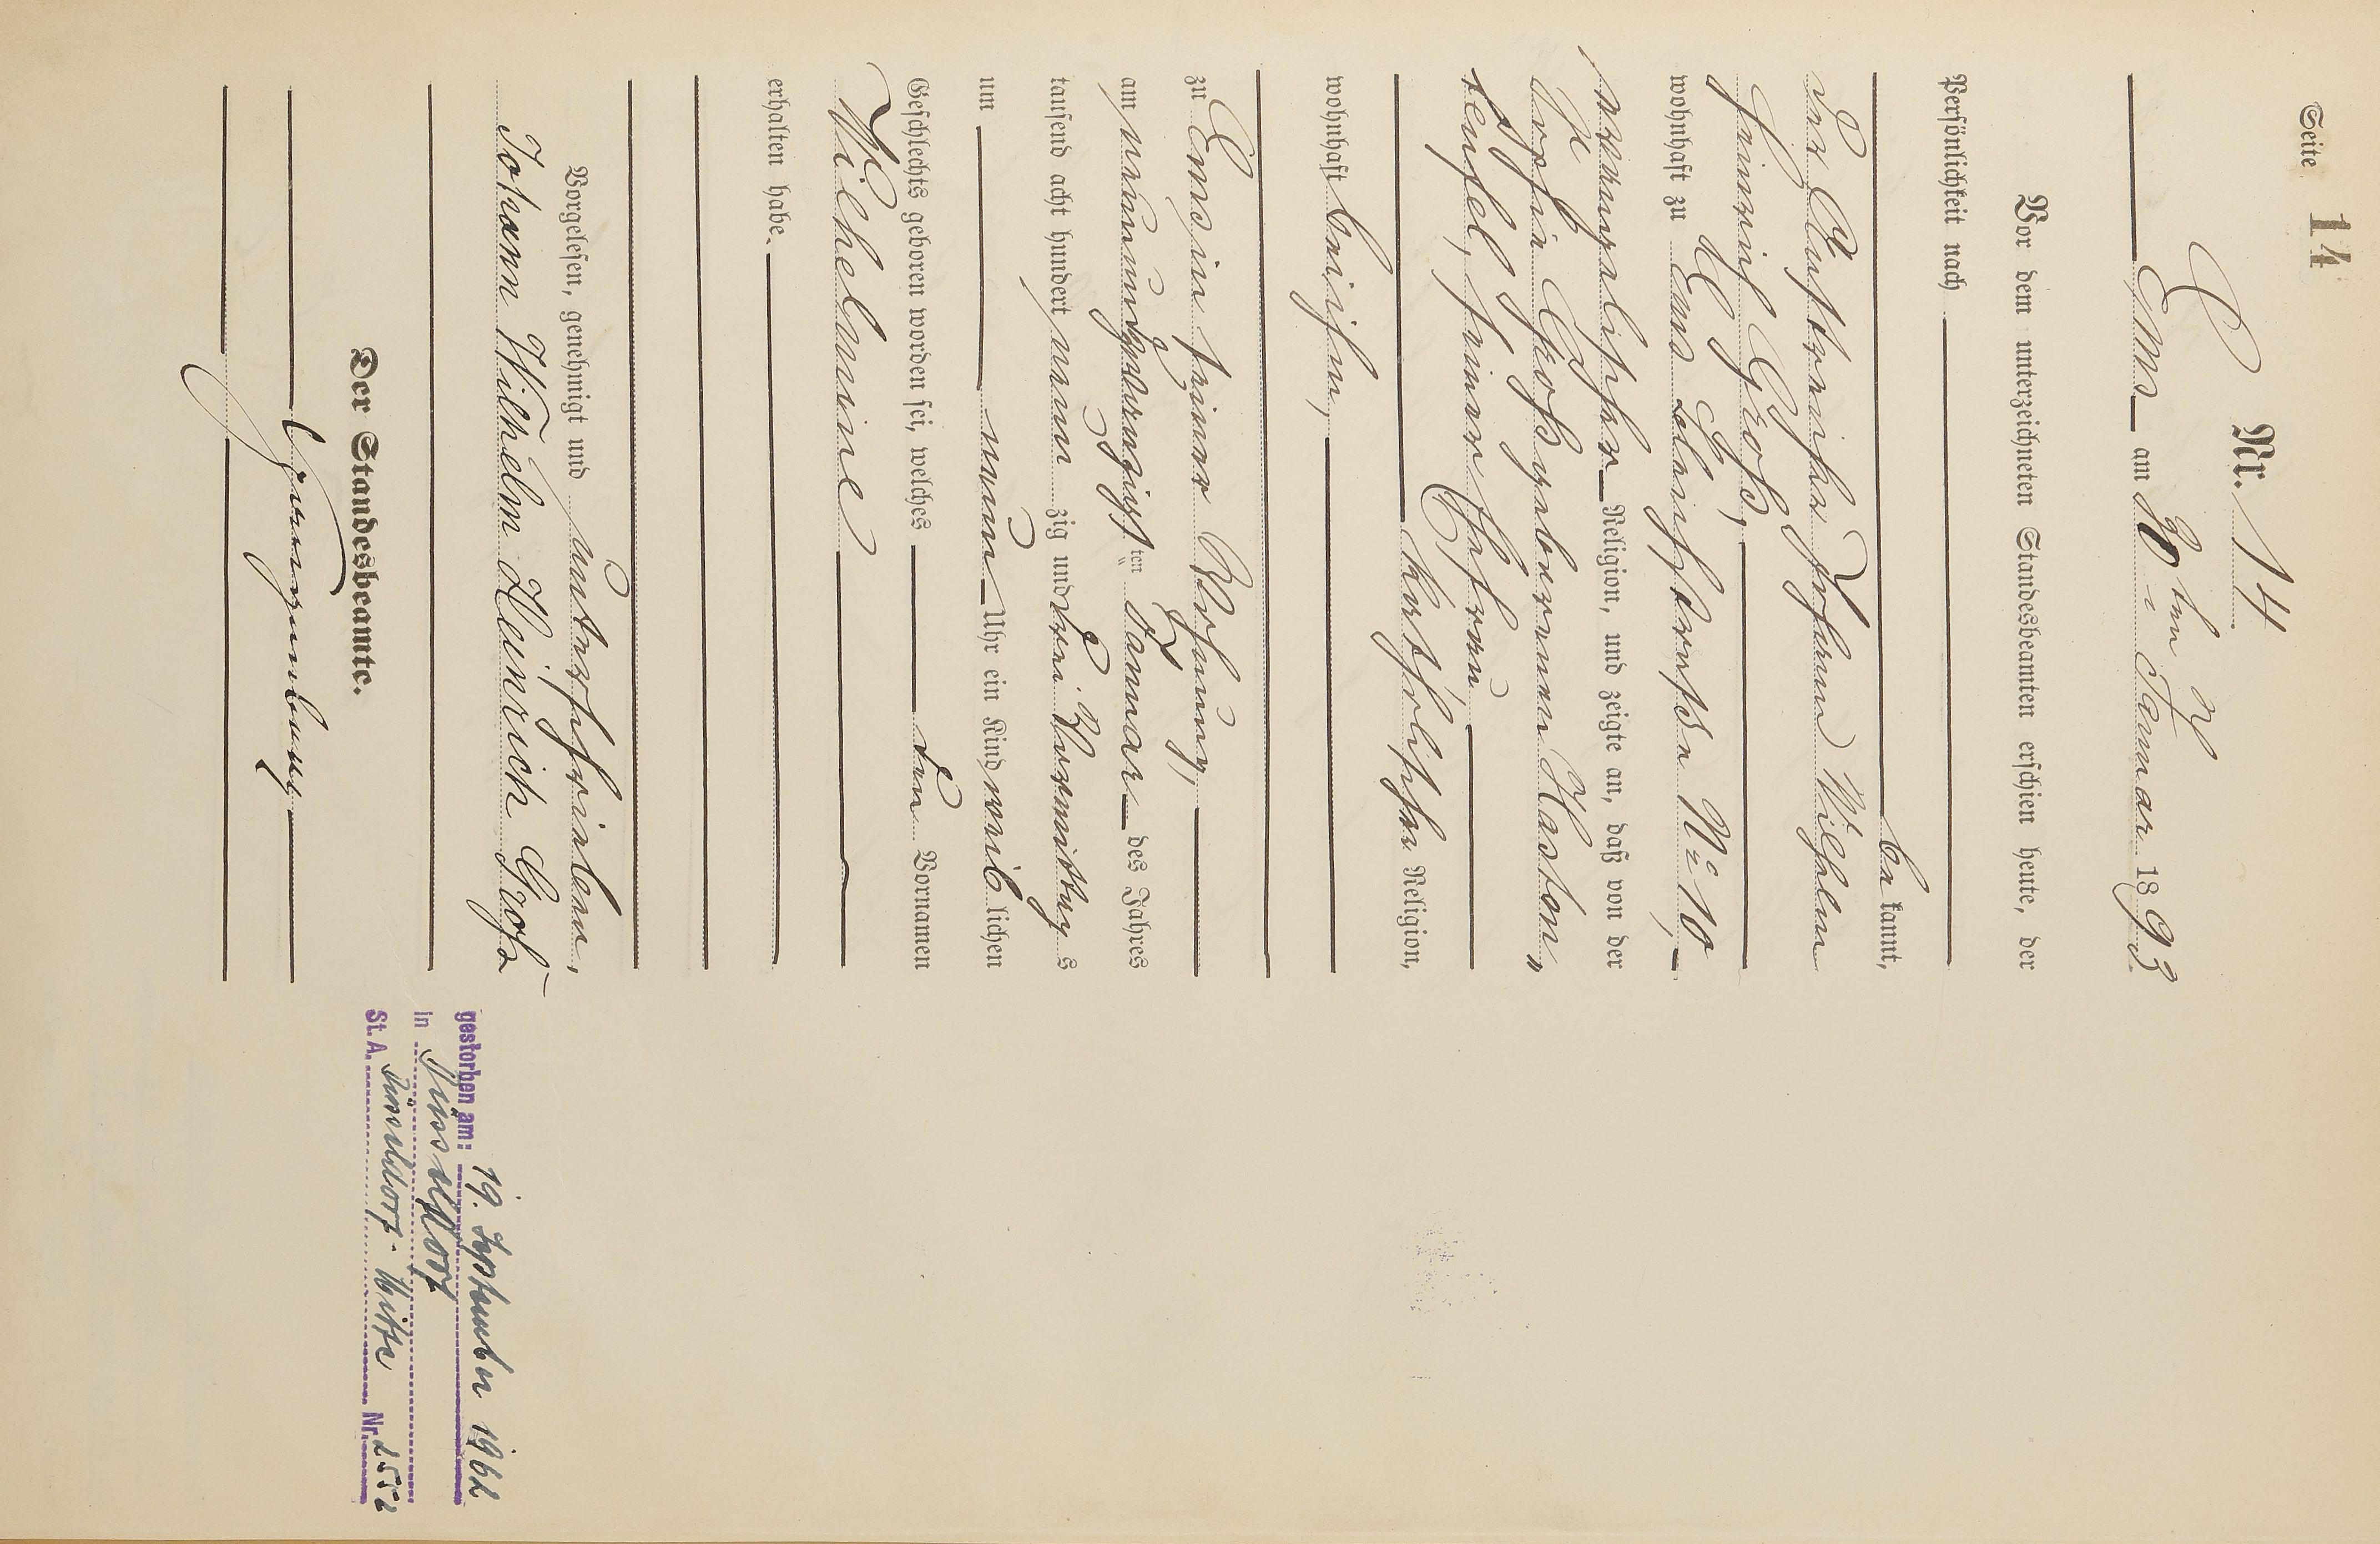 Seite 14
C
Nr. 14
Ems am 30ten Januar 1893.
Vor dem unterzeichneten Standesbeamten erschien heute, der
Persönlichkeit nach
be kannt,
der Anstreicher Johann Wilhelm
Heinrich Groß,
wohnhaft zu Ems Bleichstraße No 10,
evangelischer Religion, und zeigte an, daß von der
Groß geborenen
seiner Ehefrau
katholischer Religion,
wohnhaft bei ihm,
zu Ems in seiner Wohnung,
am neunundzwanzigsten Januar des Jahres
tausend acht hundert neun zig und drei Vormittag s
um neun Uhr ein Kind weib lichen
Geschlechts geboren worden sei, welches den Vornamen
Wilhelmine
erhalten habe.
Vorgelesen, genehmigt und unterschrieben,
Johann Wilhelm Heinrich Groß
Der Standesbeamte.
gestorben am: 19. September 1962
in Düsseldorf
St. A. Düsseldorf-Mitte Nr. 2552